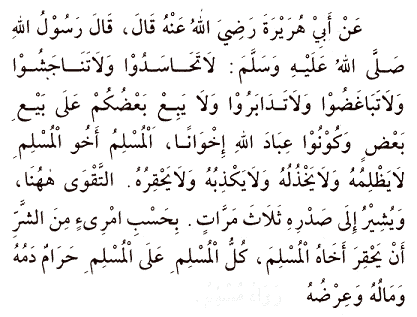 عَنْ أَبِيْ هُرَيْرَةَ رَضِيَ اللهُ عَنْهُ قَالَ، قَالَ رَسُوْلُ اللهِ
صَلَّى اللهُ عَلَيْهِ وَسَلَّمَ: لاَتَحَاسَدُوْا وَلاَتَنَاجَشُوْا
وَلاَتَبَاغَضُوْا وَلاَتَدَابَرُوْا وَلاَ يَبِعْ بَعْضُكُمْ عَلَى بَيْعِ
بَعْضٍ وَكُوْنُوْا عِبَادَ اللهِ إِخْوَانًا، اَلْمُسْلِمُ أَخُو الْمُسْلِمِ
لاَيَظْلِمُهُ وَلاَيَخْذُلُهُ وَلاَيَكْذِبُهُ وَلاَيَحْقِرُهُ. التَّقْوَى هٰهُنَا،
وَيُشِيْرُ إِلَى صَدْرِهِ ثَلاَثَ مَرَّاتٍ. بِحَسْبِ امْرِىءٍ مِنَ الشَّرِّ
أَنْ يَحْقِرَ أَخَاهُ الْمُسْلِمَ، كُلُّ الْمُسْلِمِ عَلَى الْمُسْلِمِ حَرَامٌ دَمُهُ
وَمَالُهُ وَعِرْضُهُ